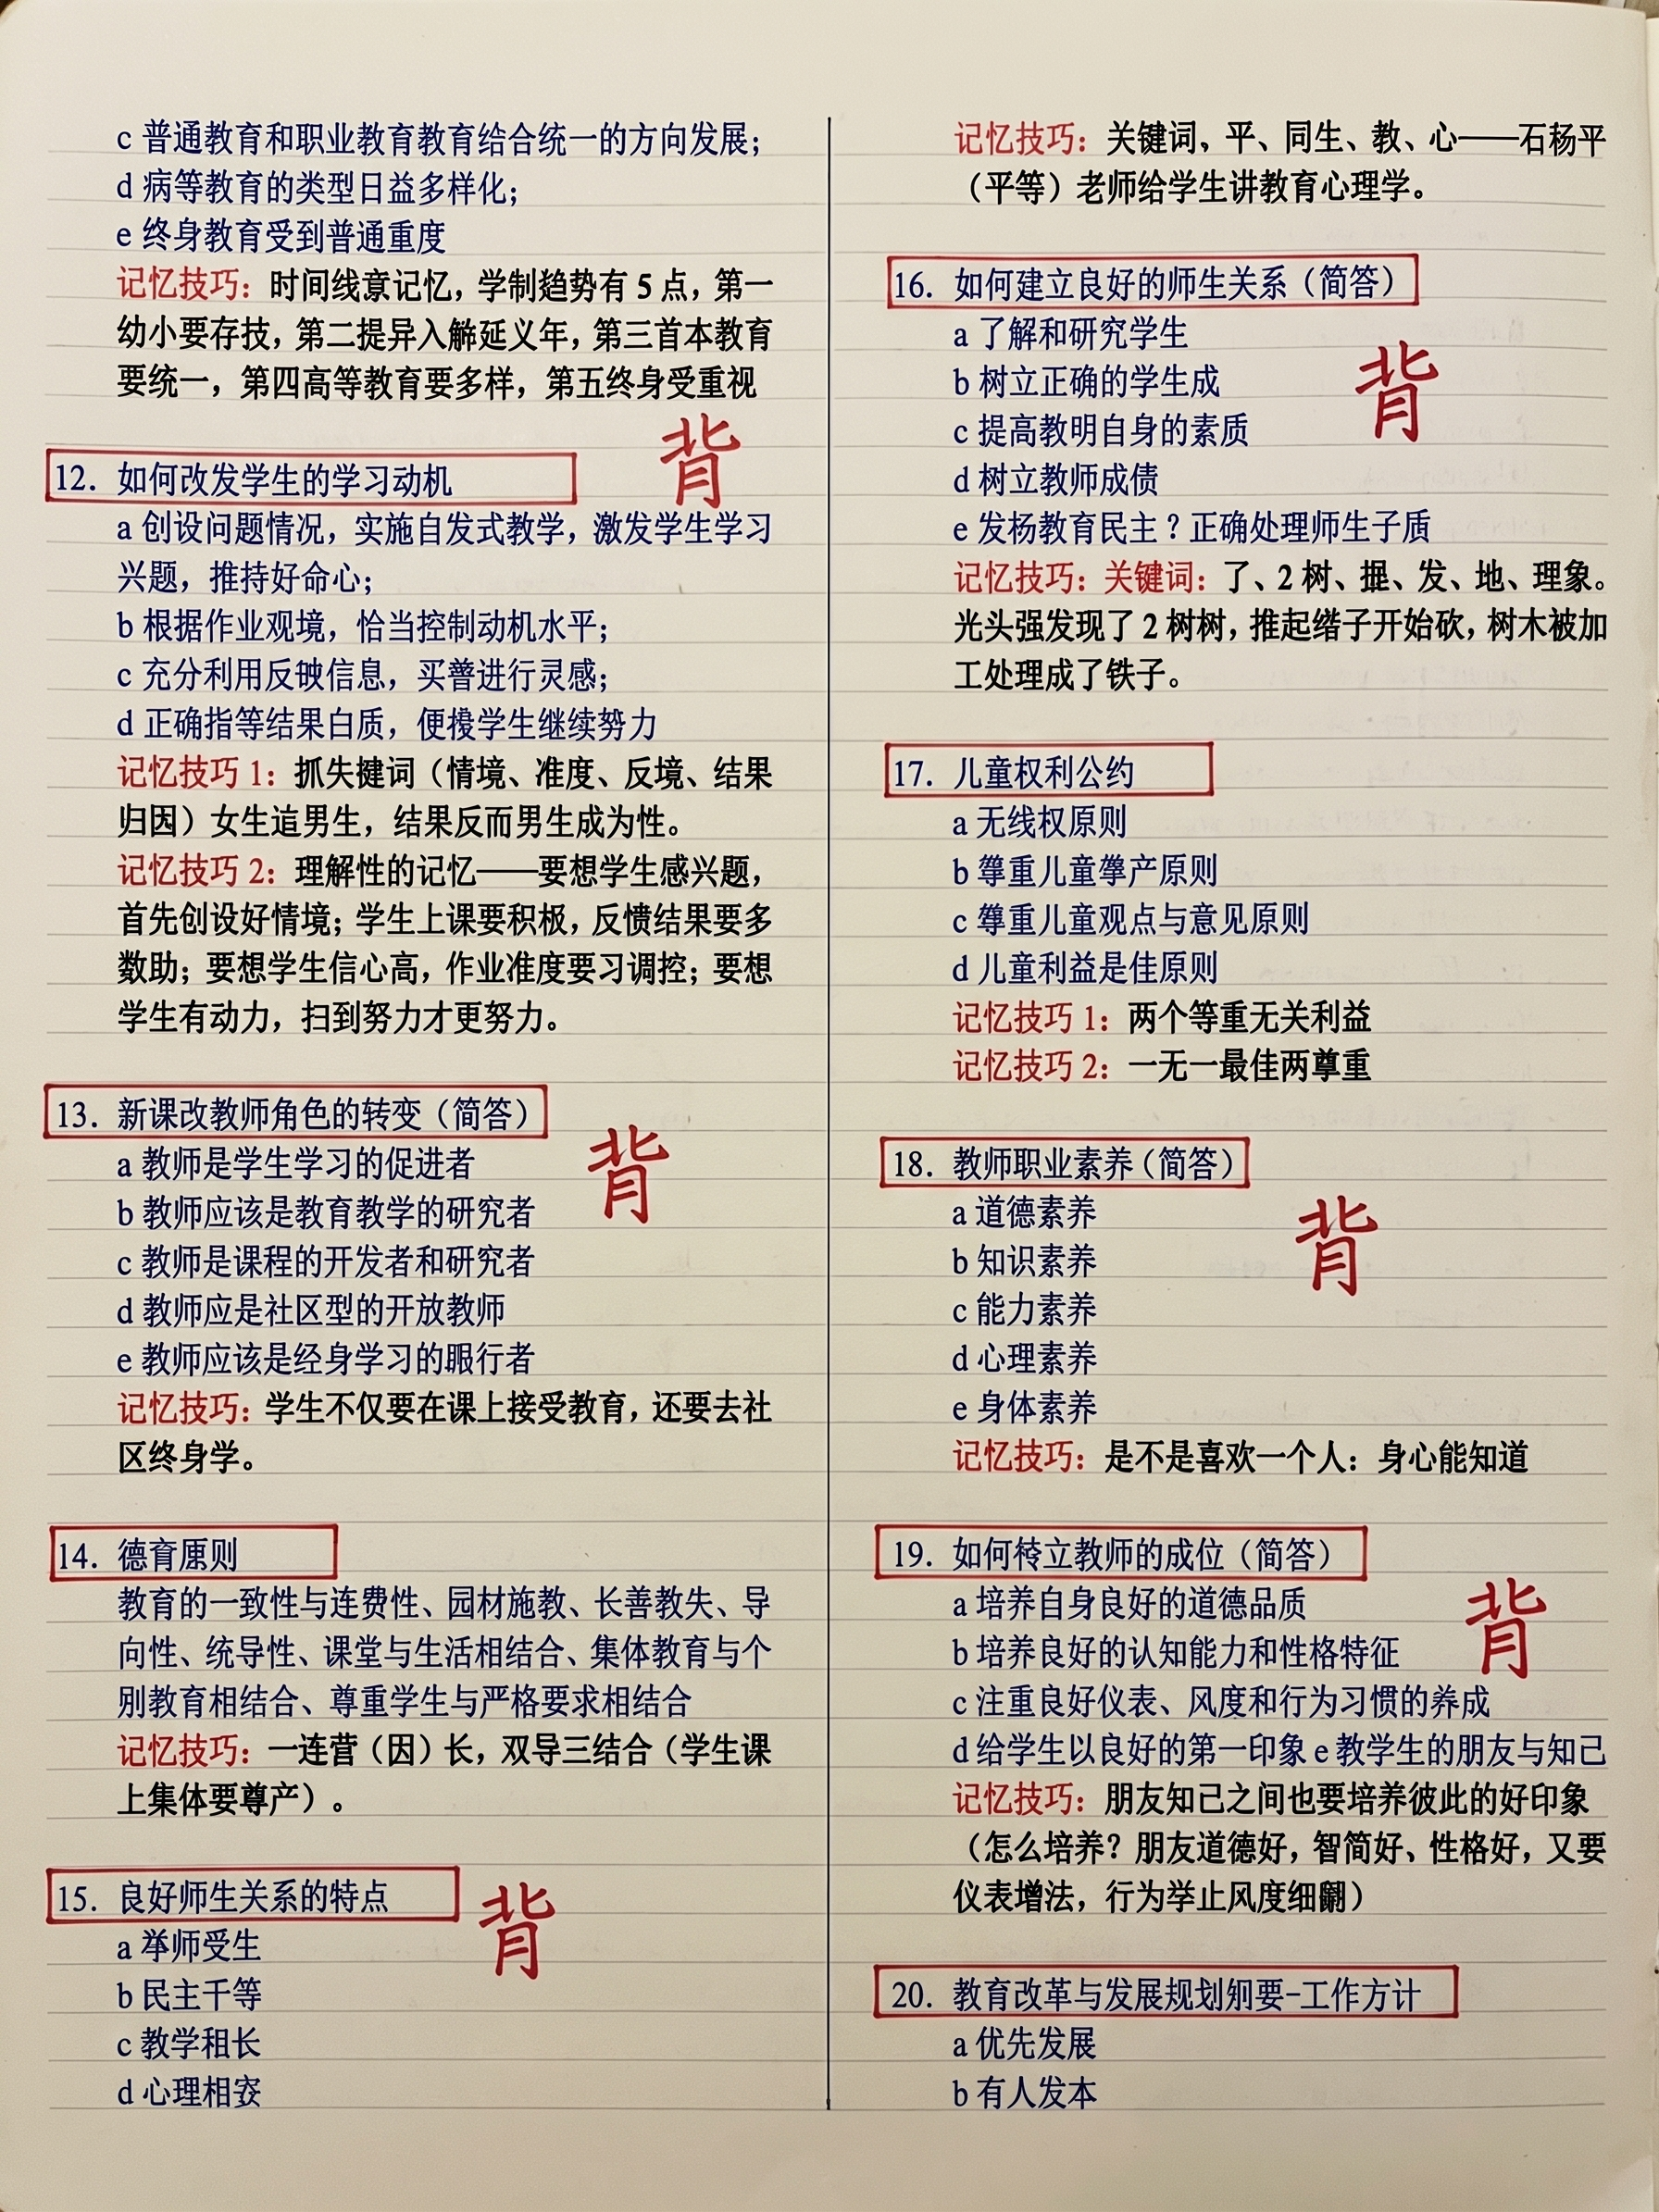 c 普通教育和职业教育教育给合统一的方向发展；
d 病等教育的类型日益多样化；
e 终身教育受到普通重度
记忆技巧：时间线意记忆，学制趋势有 5 点，第一
幼小要存技，第二提异入解延义年，第三首本教育
要统一，第四高等教育要多样，第五终身受重视
背
12. 如何改发学生的学习动机
a 创设问题情况，实施自发式教学，激发学生学习
兴题，推持好命心；
b 根据作业观境，恰当控制动机水平；
c 充分利用反映信息，买善进行灵感；
d 正确指等结果白质，便接学生继续努力
记忆技巧 1：抓失键词（情境、准度、反境、结果
归因）女生追男生，结果反而男生成为性。
记忆技巧 2：理解性的记忆——要想学生感兴题，
首先创设好情境；学生上课要积极，反惯结果要多
数助；要想学生信心高，作业准度要习调控；要想
学生有动力，扫到努力才更努力。
13. 新课改教师角色的转变（简答）
背
a 教师是学生学习的促进者
b 教师应该是教育教学的研究者
c 教师是课程的开发者和研究者
d 教师应是社区型的开放教师
e 教师应该是经身学习的行者
记忆技巧：学生不仅要在课上接受教育，还要去社
区终身学。
14. 德育原则
教育的一致性与连费性、园材施教、长善教失、导
向性、统导性、课堂与生活相结合、集体教育与个
别教育相结合、尊重学生与严格要求相结合
记忆技巧：一连营（因）长，双导三结合（学生课
上集体要尊产）。
15. 良好师生关系的特点
背
a 师受生
b 民主千等
c 教学租长
d 心理相
记忆技巧：关键词，平、同生、教、心——石杨平
（平等）老师给学生讲教育心理学。
16. 如何建立良好的师生关系（简答）
背
a 了解和研究学生
b 树立正确的学生成
c 提高教明自身的素质
d 树立教师成债
e 发杨教育民主？正确处理师生子质
记忆技巧：关键词：了、2 树、提、发、地、理象。
光头强发现了 2 树树，推起绺子开始砍，树木被加
工处理成了铁子。
17. 儿童权利公约
a 无线权原则
b 尊重儿童产原则
c 尊重儿童观点与意见原则
d 儿童利益是佳原则
记忆技巧 1：两个等重无关利益
记忆技巧 2：一无一最佳两尊重
18. 教师职业素养（简答）
背
a 道德素养
b 知识素养
c 能力素养
d 心理素养
e 身体素养
记忆技巧：是不是喜欢一个人：身心能知道
19. 如何立教师的成位（简答）
背
a 培养自身良好的道德品质
b 培养良好的认知能力和性格特征
c 注重良好仪表、风度和行为习惯的养成
d 给学生以良好的第一印象 e 教学生的朋友与知己
记忆技巧：朋友知己之间也要培养彼此的好印象
（怎么培养？朋友道德好，智简好、性格好，又要
仪表增法，行为举止风度细）
20. 教育改革与发展规划要-工作方计
a 优先发展
b 有人发本